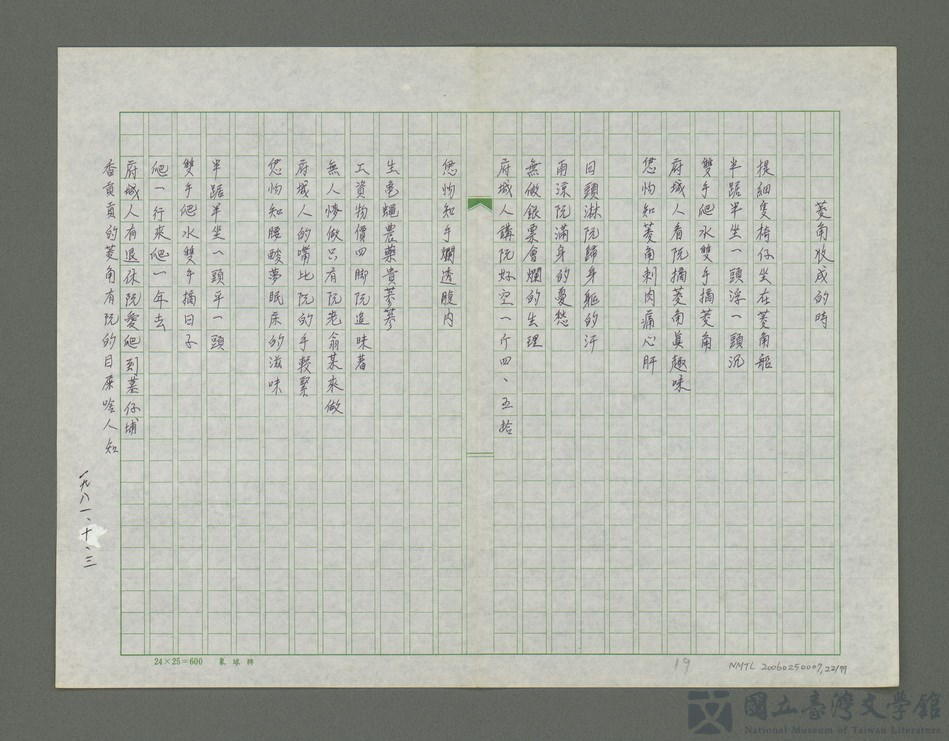 菱角收成的時
提細隻椅仔坐在菱角船
半踞半坐一頭浮一頭沉
雙手爬水雙手摘菱角
府城人看阮摘菱角真趣味
怹怐知菱角刺肉痛心肝
日頭淋阮歸身軀的汗
雨淙阮滿身的憂愁
無做銀票會爛的生理
府城人講阮好空一斤四、五拾
怹怐知手爛透腹內
生毛蟳農藥貴蔘蔘
工資物價四脚阮追昧著
無人慘做只有阮老翁某來做
府城人的嘴比阮的手較緊
怹怐知腰酸夢眠床的滋味
半踞半坐一頭平一頭
雙手爬水雙手摘日子
爬一行來爬一年去
府城人有退休阮愛爬到墓仔埔
香貢貢的菱角有阮的目屎啥人知
一九八一、十、三
24×25=600
NMTL 20060250007,22/77
19
國立臺灣文學館
National Museum of Taiwan Literature